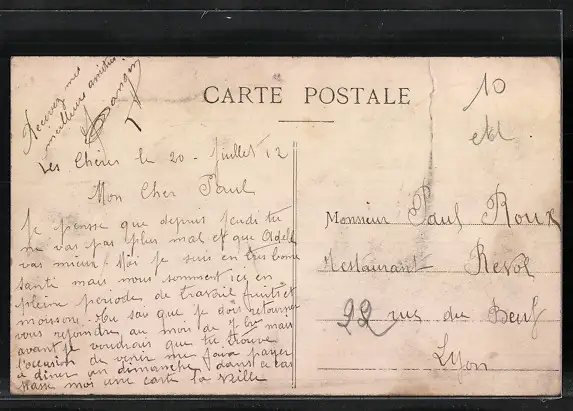 Recevez mes
meilleures amitiés
CARTE POSTALE
10
Les Chères le 20 Juillet 12
Mon Cher Paul
Je pense que depuis jeudi tu
ne vas pas plus mal et que Adèle
vas mieux. Moi je suis en très bonne
santé mais nous somment ici en
pleine période de travail fruits et
moisson. Tu sais que je dois retourner
vous rejoindre au mois de 7bre mais
avant je voudrais que tu trouve
l'occasion de venir me faire payer
à diner un dimanche dans ce cas
moi une carte la veille
Monsieur Paul Roux
Restaurant Revol
22 rue du Beuf
Lyon